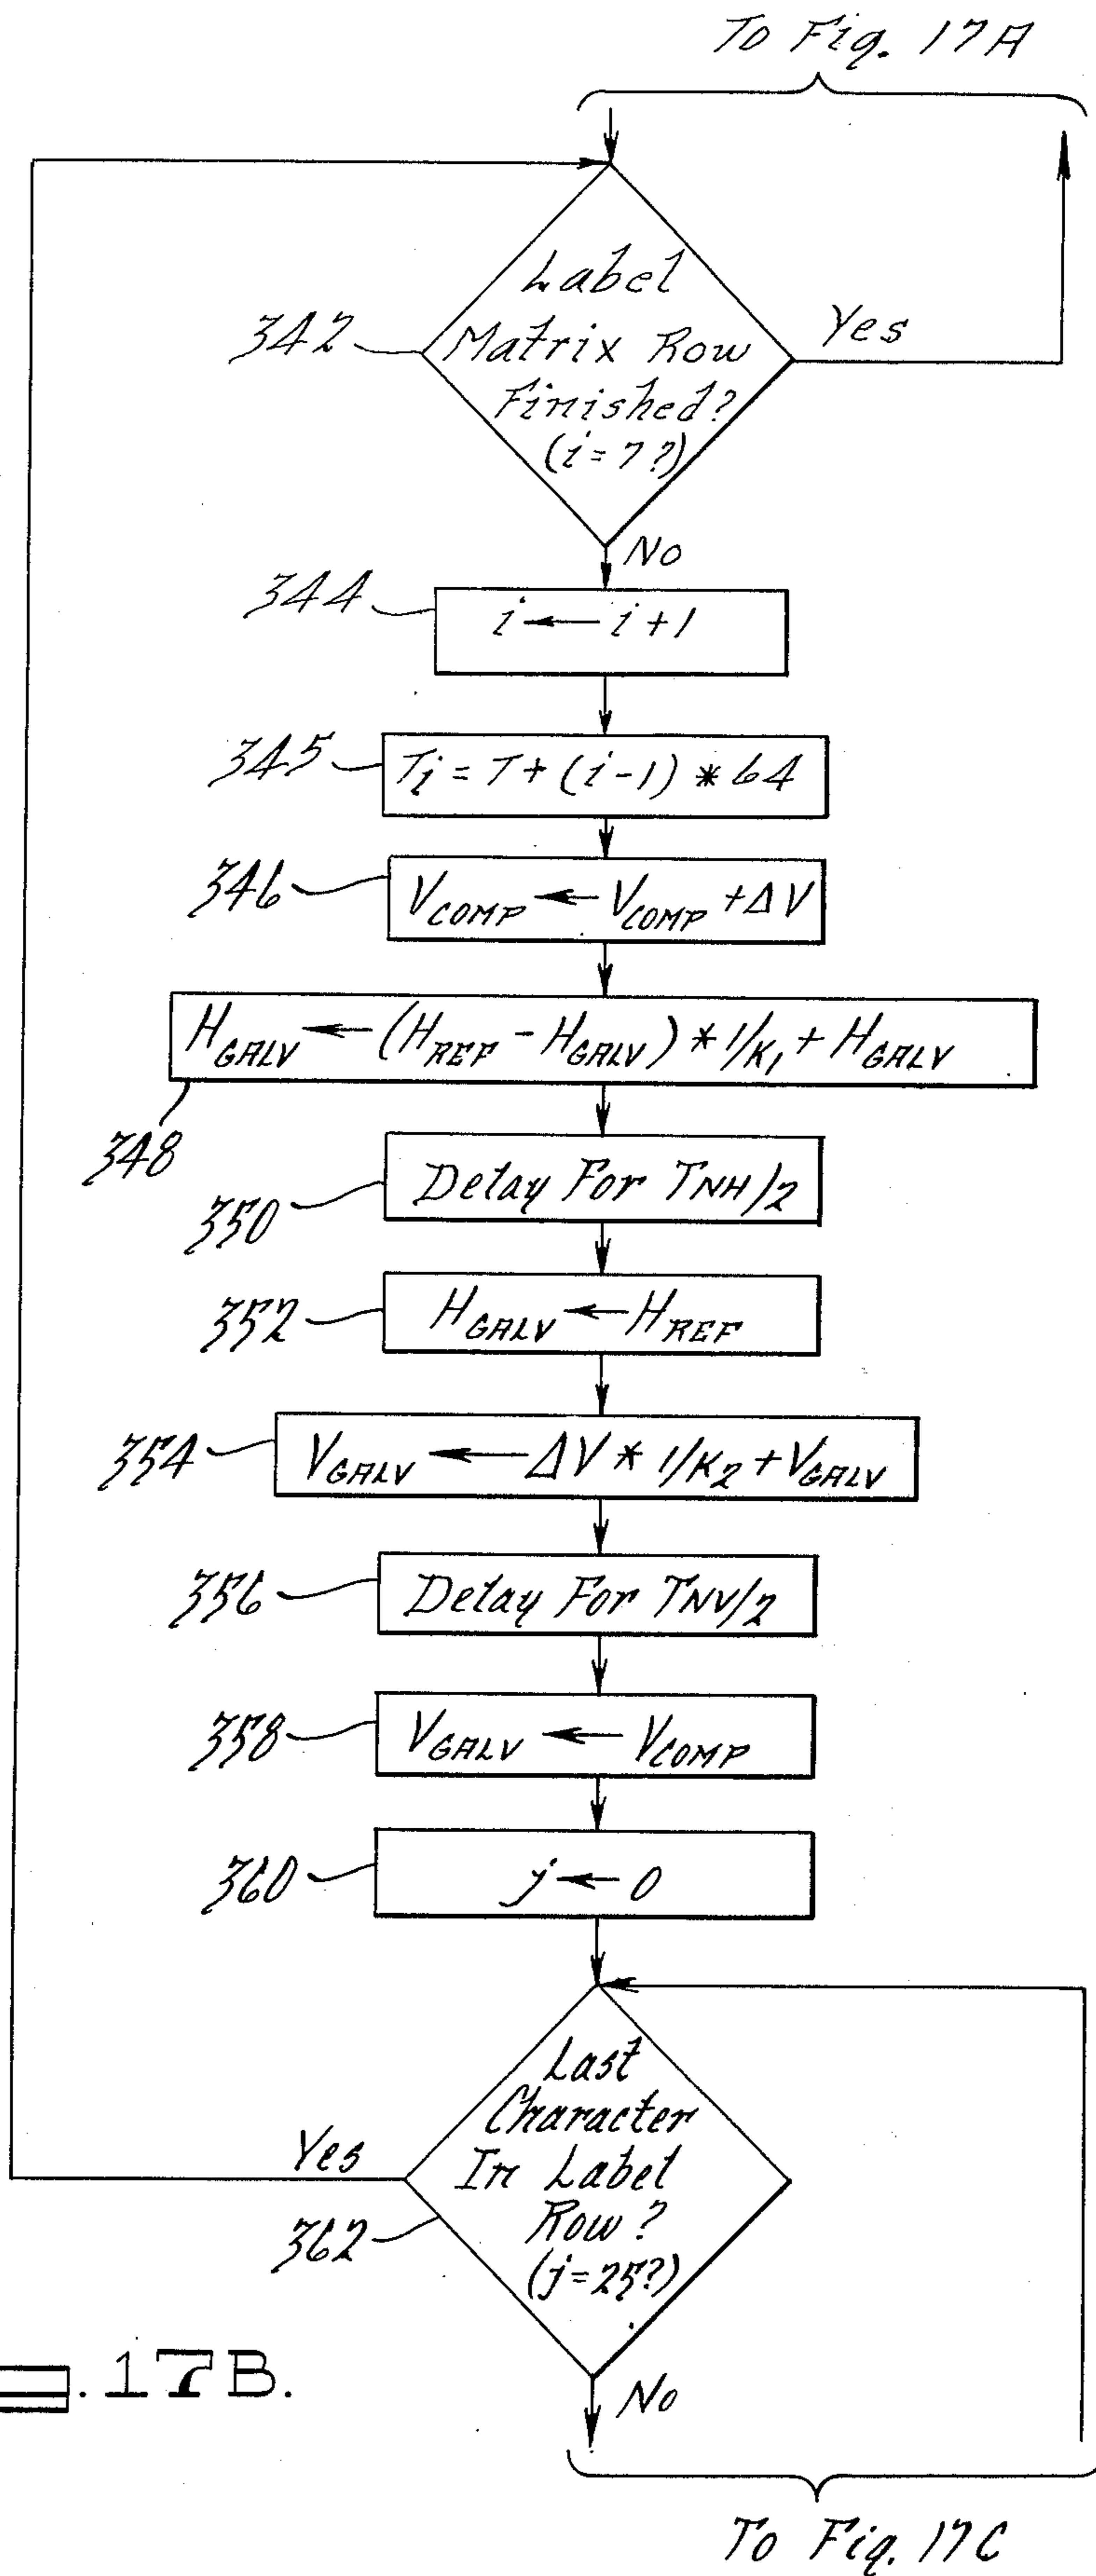 To Fig. 17A
Label
Matrix Row
Finished?
(i=7?)
342
Yes
No
344
i ← i+1
345
Ti = T + (i-1) * 64
346
VCOMP ← VCOMP + ΔV
HGALV ← (HREF - HGALV) * 1/K1 + HGALV
348
Delay For TNH/2
350
HGALV ← HREF
352
354
VGALV ← ΔV * 1/K2 + VGALV
356
Delay For TNV/2
358
VGALV ← VCOMP
360
j ← 0
Last
Character
In Label
Row?
(j=25?)
Yes
362
No
. 17B.
To Fig. 17C